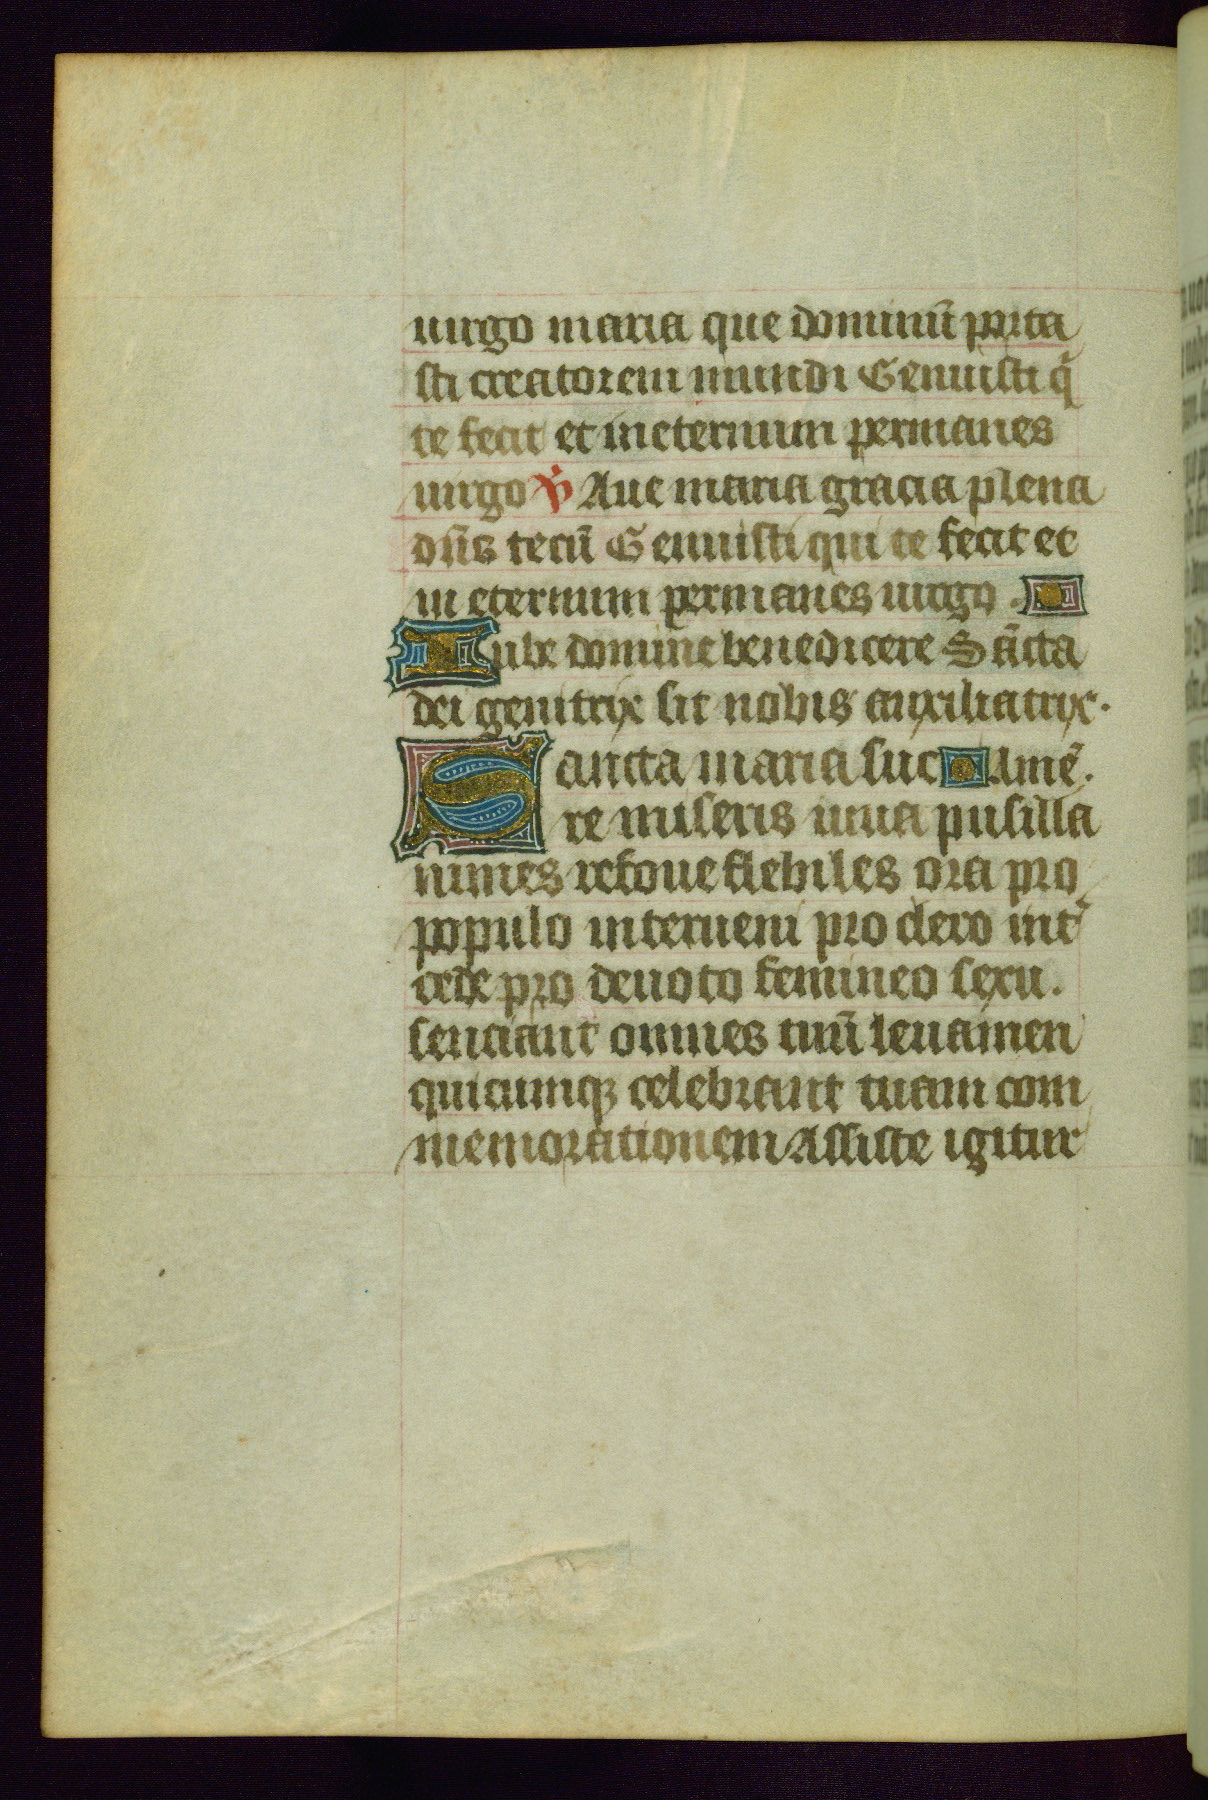 uirgo maria que dominū porta
sti creatorem mundi Genuisti q̄
te fecit et in eternum permanes
uirgo ℣ Aue maria gracia plena
dn̄s tecū Genuisti qui te fecit et
in eternum permanes uirgo .
Iube domine benedicere Sācta
dei genitrix sit nobis auxiliatrix.
Sancta maria suc Amē.
re miseris iuua pusilla
nimes refoue flebiles ora pro
populo interueni pro clero int̄
cede pro deuoto femineo sexu.
senciant omnes tuū leuamen
quicumqꝫ celebrant tuam com
memorationem Assiste igitur